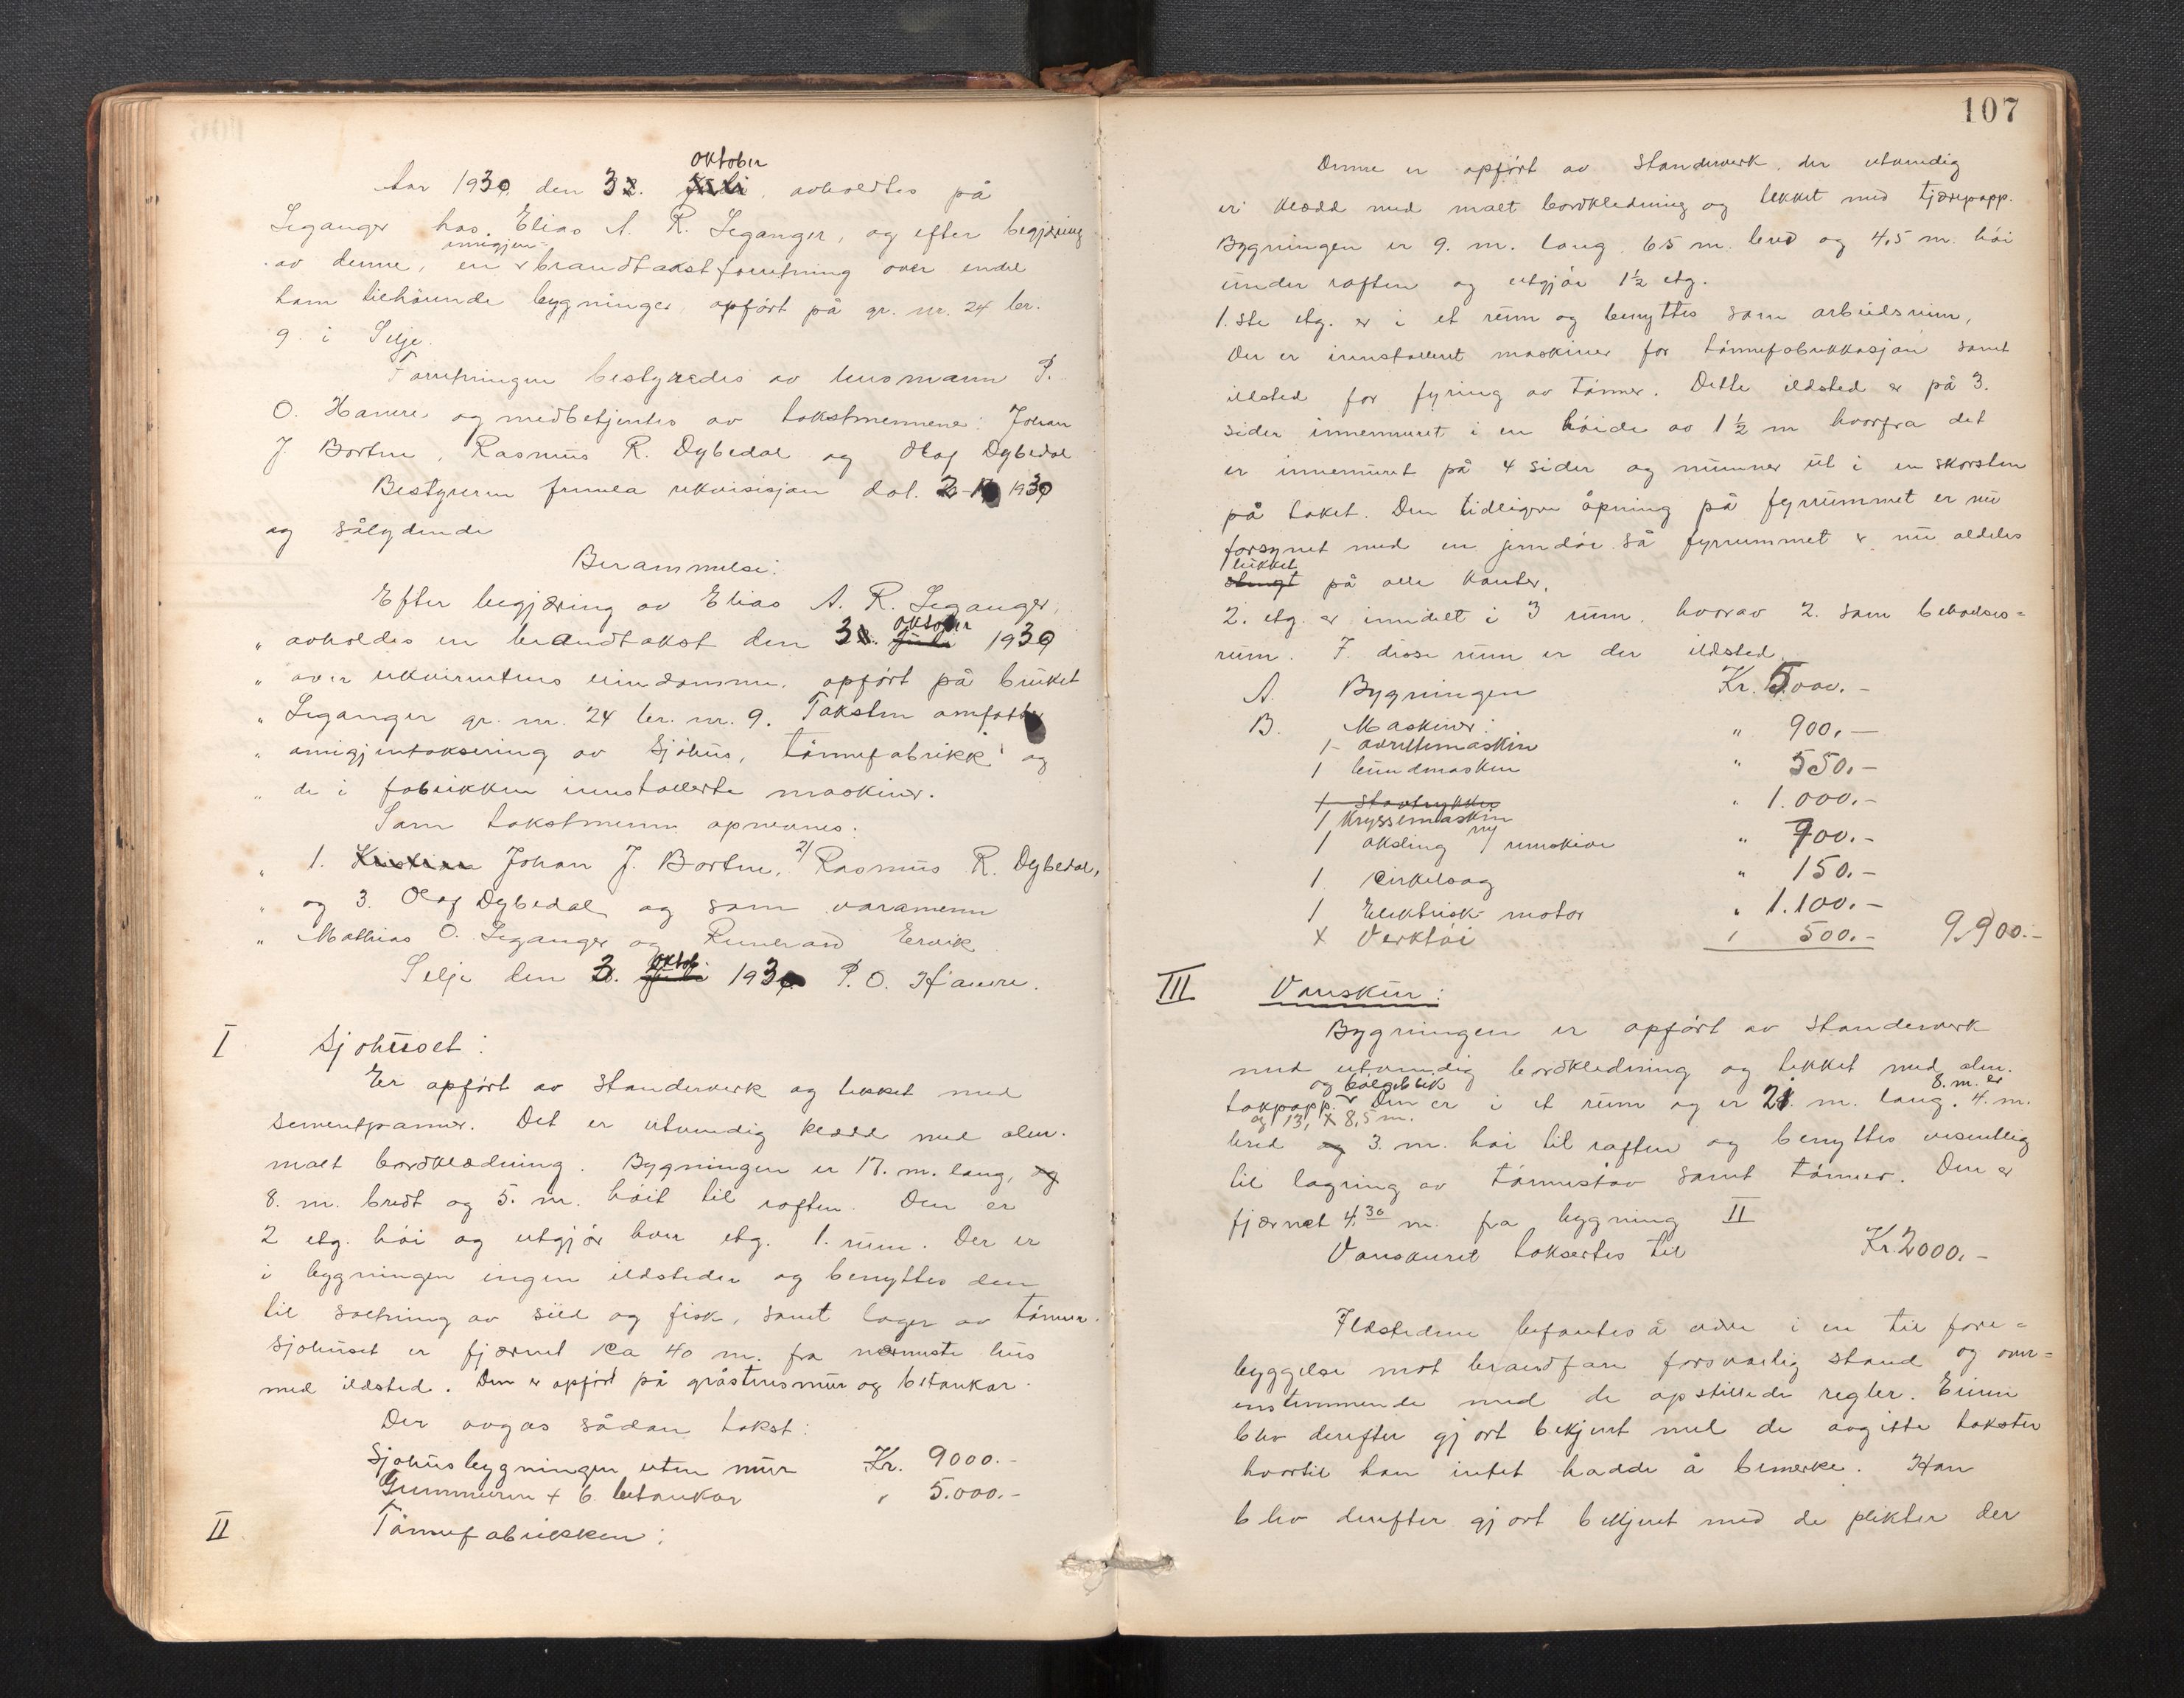 oktober
Aar 1930 den 3. ~~juli~~, avholdtes på
Leganger hos Elias A. R. Leganger, og efter begjæring
omigjen=
av denne, en brandtakstforretning over endel
ham tilhørende bygninger opført på gr. nr. 24 br.
9 i Selje.
Forretningen bestyredes av lensmann P.
O. Hamre og medbetjentes av takstmennene: Johan
J. Bortne, Rasmus R. Dybedal og Olaf Dybedal
Bestyreren fremla rekvisisjon dat. 1930
og sålydende
Berammelse:
Efter begjæring av Elias A. R. Leganger,
oktober
" avholdes en brandtakst den 3. ~~juli~~ 1930
" over rekvirentens eiendomme, opført på bruket
" Leganger gr. nr. 24 br. nr. 9. Taksten omfatter
" omigjentaksering av Sjøhus, tønnefabrikk og
" de i fabrikken innstallerte maskiner.
Som takstmenn opnevnes:
" 1. ~~Kristian~~ Johan J. Bortne, 2/ Rasmus R. Dybedal,
" og 3. Olaf Dybedal og som varamenn
" Mathias O. Leganger og Ervik
oktob
Selje den 2. ~~juli~~ 1930 P. O. Hamre.
I Sjøhuset:
Er opført av standerverk og tekket med
sementpanner. Det er utvendig kledd med alm.
malt bordklædning. Bygningen er 17. m. lang, ~~og~~
8. m. bredt og 5. m. høit til raften. Den er
2 etg. høi og utgjør hver etg. 1. rum. Der er
i bygningen ingen ildsteder og benyttes den
til saltning av sild og fisk, samt lager av tønner.
Sjøhuset er fjærnet ca 40 m. fra nærmeste hus
med ildsted. Den er opført på gråstensmur og betankar.
Der avgas sådan takst:
Sjøhusbygningen uten mur Kr. 9000.-
Grunnmuren + 6 betankar " 5.000.-
II Tønnefabrikken:
107
Denne er opført av standerverk, der utvendig
er klædd med malt bordkledning og tekket med tjærepapp.
Bygningen er 9. m. lang 6.5 m. bred og 4,5 m. høi
under raften og utgjør 1½ etg.
1.ste etg. er i et rum og benyttes som arbeidsrum,
Der er innstalleret maskiner for tønnefabrikkasjon samt
ildsted for fyring av tønner. Dette ildsted er på 3.
sider innemuret i en høide av 1½ m hvorfra det
er innemuret på 4 sider og munner ut i en skorsten
på taket. Den tidligere åpning på fyrrummet er nu
forsynet med en jerndør så fyrrummet er nu aldeles
lukket
~~stengt~~ på alle kanter.
2. etg. er inndelt i 3 rum, hvorav 2. som beboelses=
rum. I disse rum er der ildsted.
A. Bygningen Kr. 5000.-
B. Maskiner: " 900.-
1 avrettemaskin
1 bundmaskin " 550.-
~~1 stavtrykker~~ " 1.000.-
1 Kryssemaskin
1 aksling m/ remskive " 700.-
1 Cirkelsag " 150.-
1 Elektrisk motor " 1.100.-
x Verktøi " 500.- 9.900.-
III Vanskur:
Bygningen er opført av standerverk
med utvendig bordkledning og tekket med alm.
og bølgeblik 8. m. er
takpapp. Den er i et rum og er 21. m. lang. 4. m.
og 13, x 8,5 m.
bred ~~og~~ 3. m. høi til raften og benyttes vesentlig
til lagring av tønnestav samt tønner. Den er
fjærnet 4,30 m. fra bygning II
Vanskuret takseres til Kr. 2000.-
Ildstedene befantes å være i en til fore=
byggelse mot brandfare forsvarlig stand og over=
enstemmende med de opstillede regler. Eieren
blev derefter gjort bekjent med de avgitte takster
hvortil han intet hadde å bemerke. Han
blev derefter gjort bekjent med de plikter der